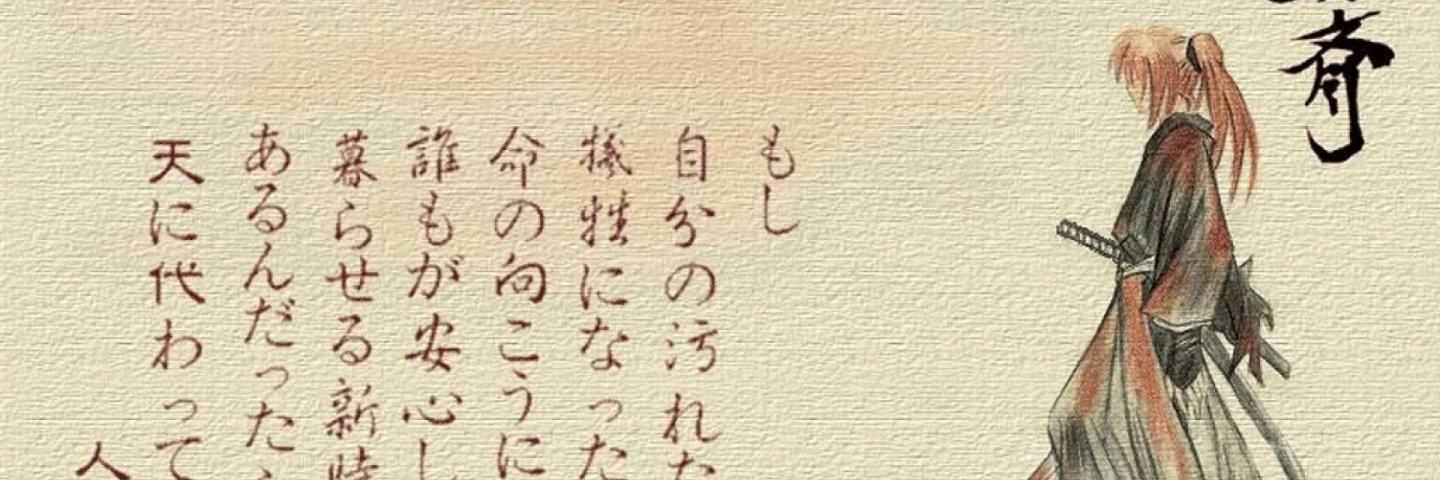 斎
もし
自分の汚れた
犠牲になった
命の向こうに
誰もが安心し
暮らせる新時
あるんだった
天に代わって
人